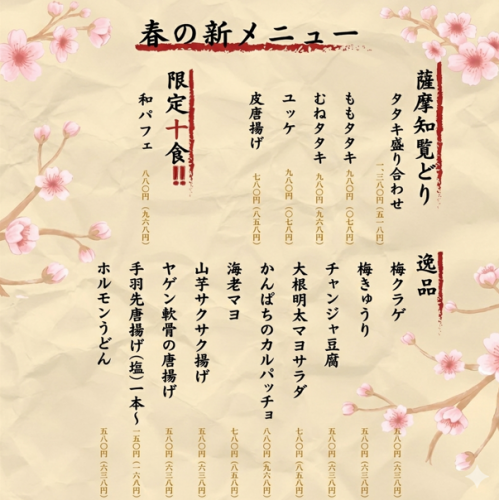 春の新メニュー
薩摩知覧どり
タタキ盛り合わせ 一、三八〇円(五一八円)
ももタタキ 九八〇円(〇七八円)
むねタタキ 八八〇円(九六八円)
ユッケ 九八〇円(〇七八円)
皮唐揚げ 七八〇円(八五八円)
限定十食!!
和パフェ 八八〇円(九六八円)
逸品
梅クラゲ 五八〇円(六三八円)
梅きゅうり 五八〇円(六三八円)
チャンジャ豆腐 五八〇円(六三八円)
大根明太マヨサラダ 七八〇円(八五八円)
かんぱちのカルパッチョ 八八〇円(九六八円)
海老マヨ 七八〇円(八五八円)
山芋サクサク揚げ 五八〇円(六三八円)
ヤゲン軟骨の唐揚げ 五八〇円(六三八円)
手羽先唐揚げ(塩)一本〜 一五〇円(一六八円)
ホルモンうどん 五八〇円(六三八円)